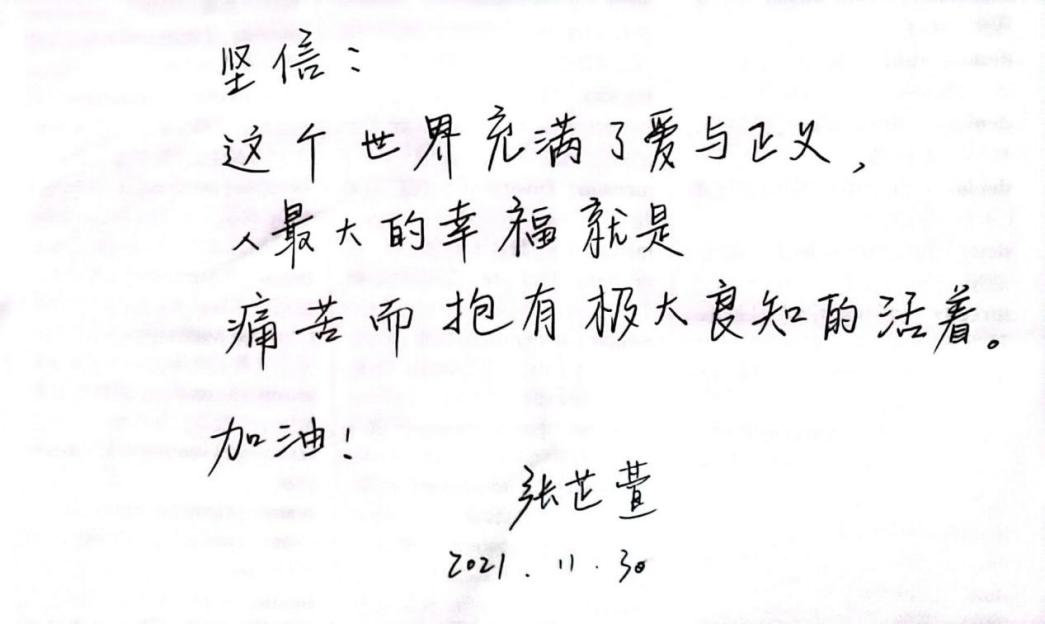 坚信：
这个世界充满了爱与正义，
人最大的幸福就是
痛苦而抱有极大良知的活着。
加油！
张芷萱
2021.11.30